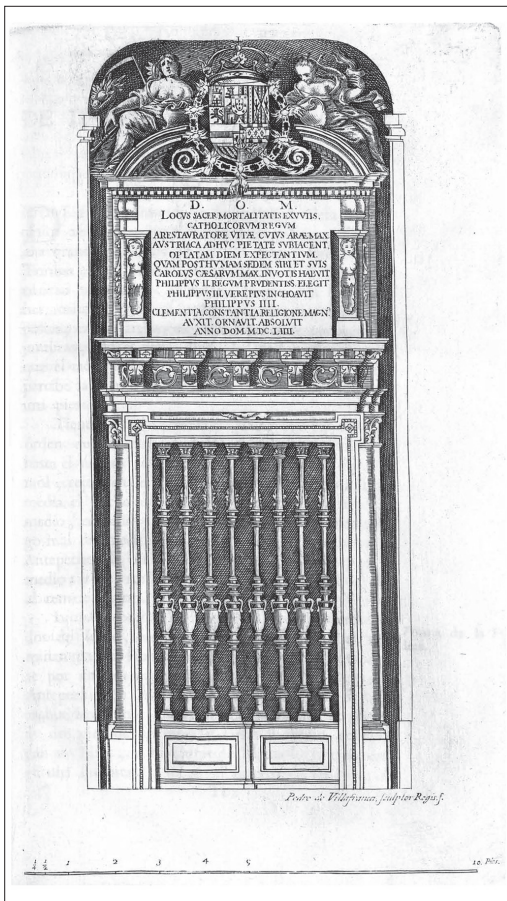 D. O. M.
LOCVS SACER MORTALITATIS EXVVIIS.
CATHOLICORUM REGVM
ARESTAVRATORE VITÆ, CVIVS ARÆMAX
AVSTRIACA ADHVC PIETATE SVBIACENT.
OPTATAM DIEM EXPECTANTIVM.
QVAM POSTHVMAM SEDEM SIBI ET SVIS
CAROLVS CÆSARVM MAX. INVOTIS HABVIT
PHILIPPVS II. REGVM PRVDENTISS. ELEGIT
PHILIPPVS III. VERE PIVS INCHOAVIT
PHILIPPVS IIII.
CLEMENTIA, CONSTANTIA RELIGIONE MAGN⁹.
AVXIT. ORNAVIT. ABSOLVIT
ANNO DOM. M.DC.LIIII.
Pedro de Villafranca, sculptor Regis f.
¼ ½ 1 2 3 4 5 10. Pies.